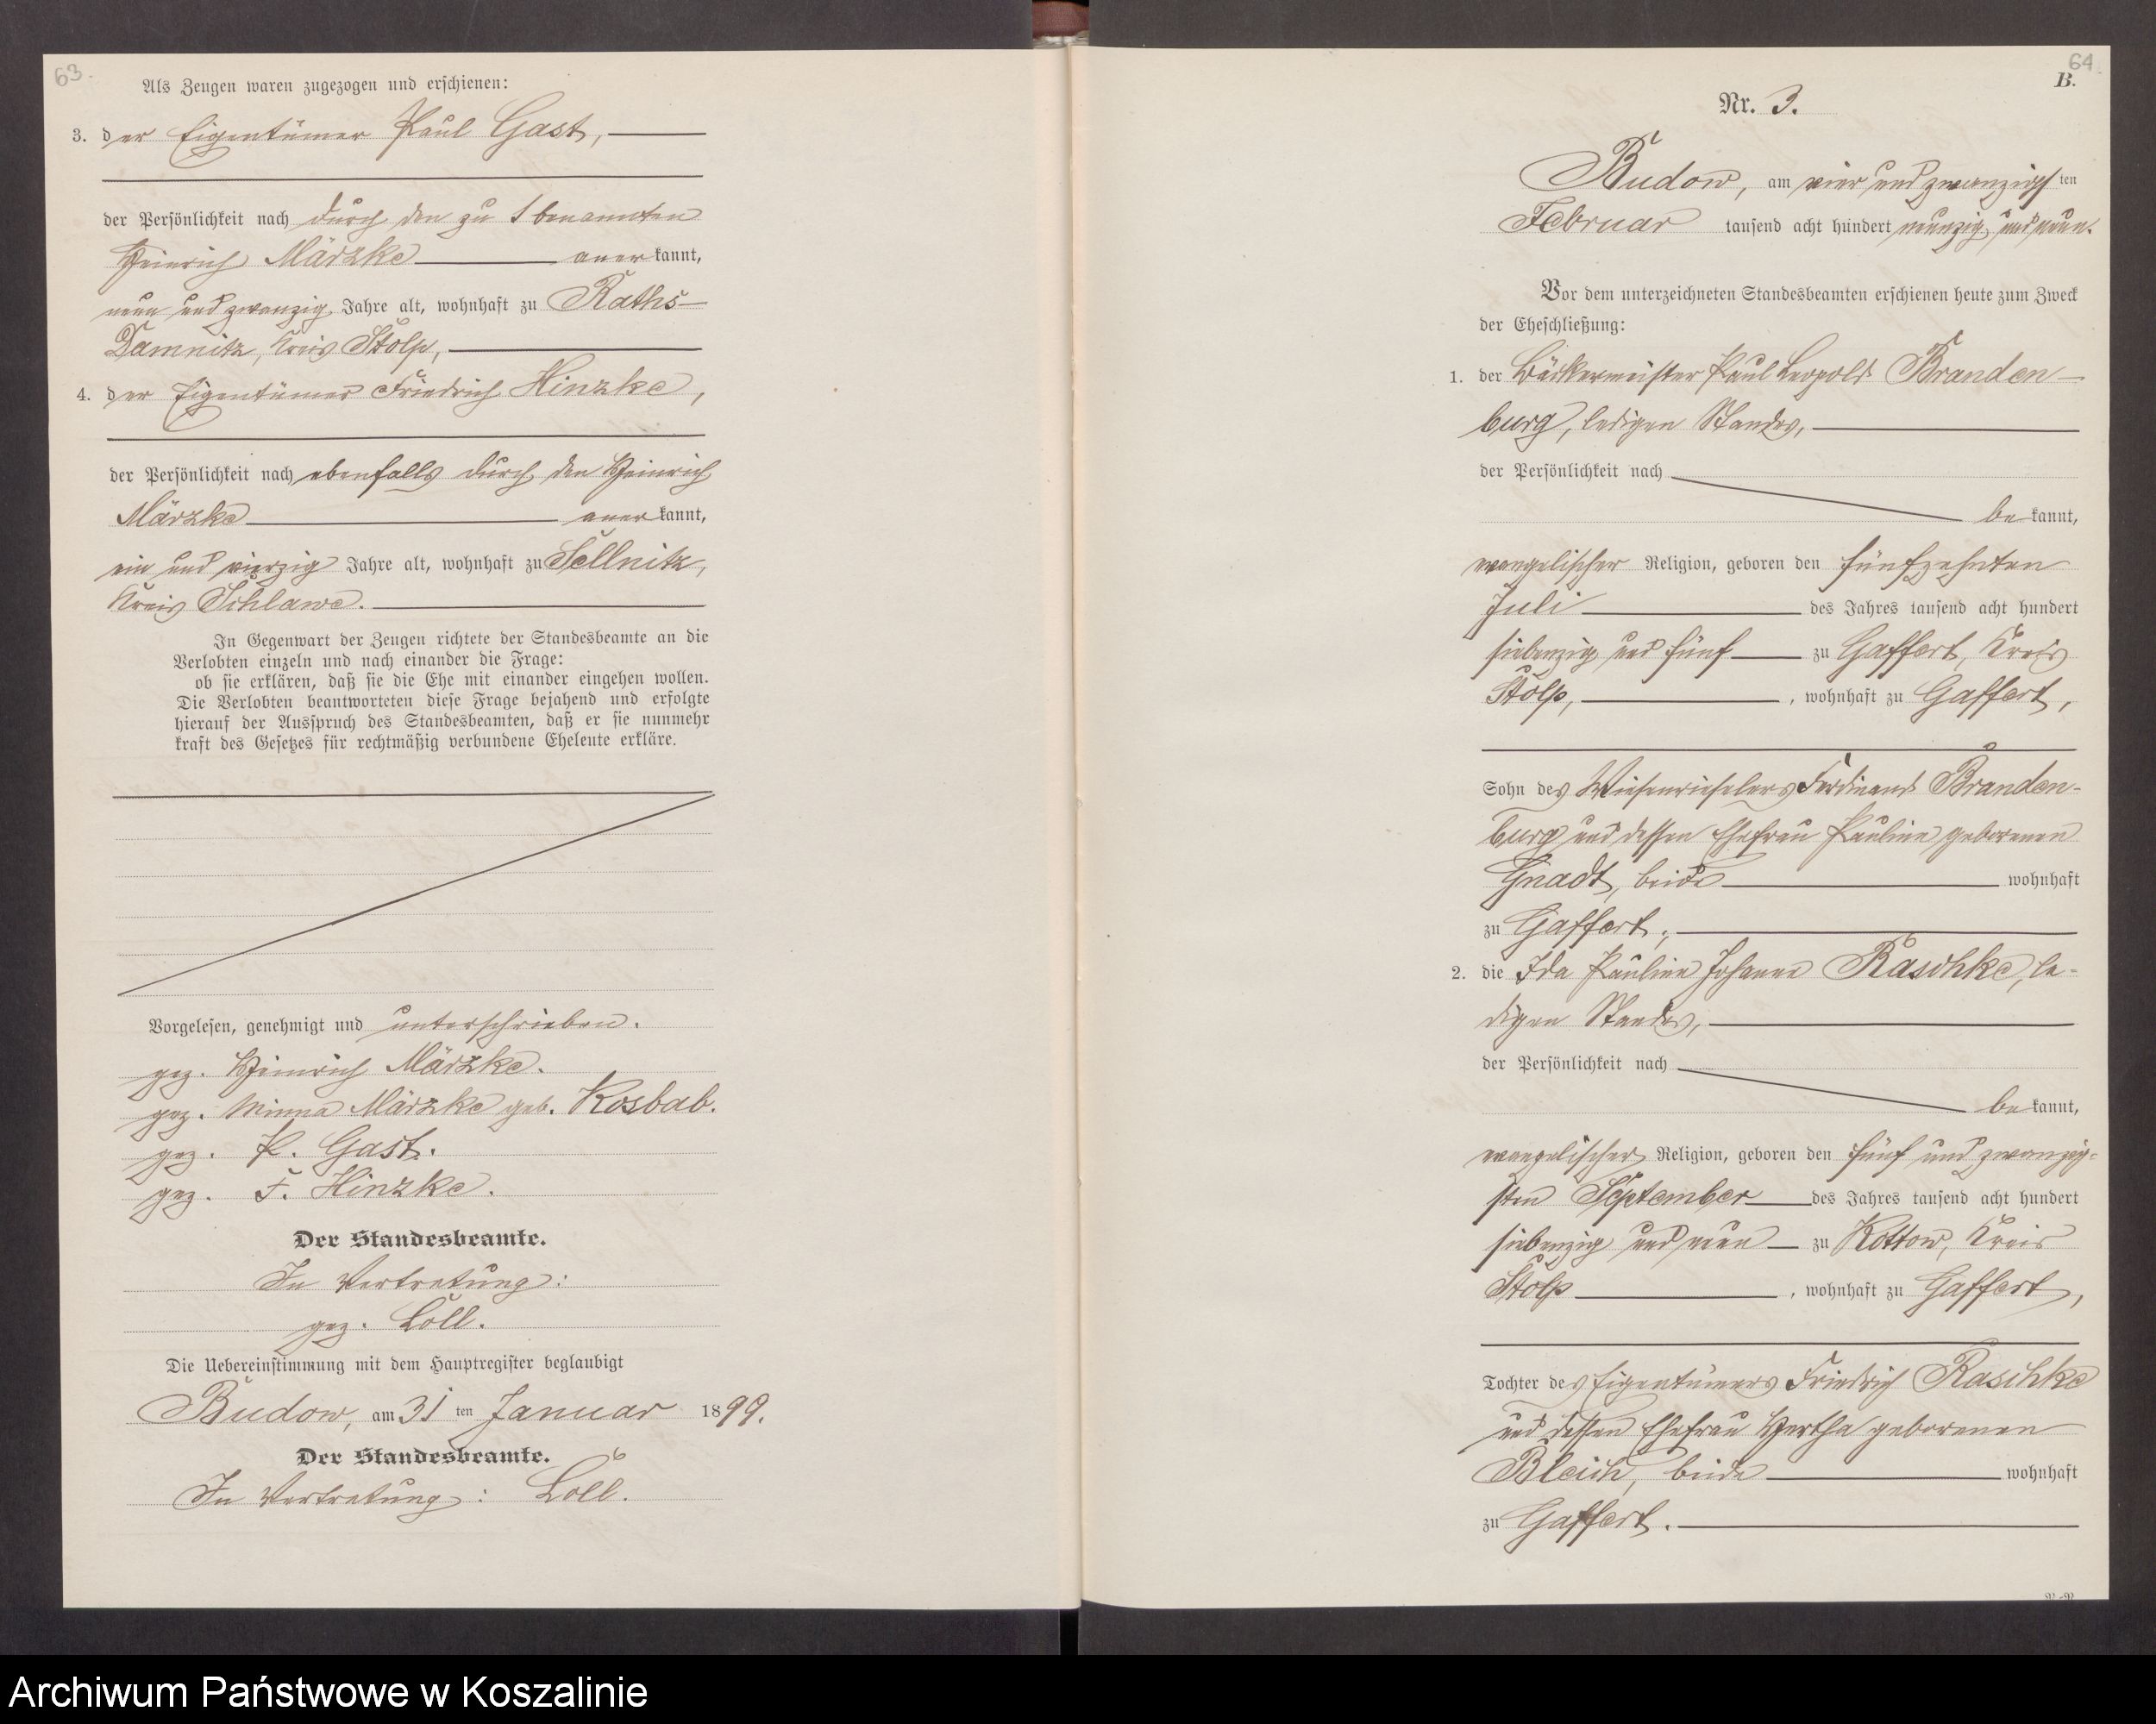 63.
Als Zeugen waren zugezogen und erschienen:
3. der Eigentümer Paul Gast,
der Persönlichkeit nach durch den zu 1 benannten
Heinrich Märzke anerkannt,
neun und zwanzig Jahre alt, wohnhaft zu Raths-
Damnitz, Kreis Stolp,
4. der Eigentümer Friedrich Hinzke,
der Persönlichkeit nach ebenfalls durch den Heinrich
Märzke anerkannt,
ein und vierzig Jahre alt, wohnhaft zu Sellnitz,
Kreis Schlawe.
In Gegenwart der Zeugen richtete der Standesbeamte an die
Verlobten einzeln und nach einander die Frage:
ob sie erklären, daß sie die Ehe mit einander eingehen wollen.
Die Verlobten beantworteten diese Frage bejahend und erfolgte
hierauf der Ausspruch des Standesbeamten, daß er sie nunmehr
kraft des Gesetzes für rechtmäßig verbundene Eheleute erkläre.
Vorgelesen, genehmigt und unterschrieben.
gez. Heinrich Märzke.
gez. Minna Märzke geb. Kosbab.
gez. P. Gast.
gez. F. Hinzke.
Der Standesbeamte.
In Vertretung:
gez. Löll.
Die Uebereinstimmung mit dem Hauptregister beglaubigt
Budow, am 31 ten Januar 1899.
Der Standesbeamte.
In Vertretung: Löll.
64.
B.
Nr. 3.
Budow, am vier und zwanzigsten
Februar tausend acht hundert neunzig und neun.
Vor dem unterzeichneten Standesbeamten erschienen heute zum Zweck
der Eheschließung:
1. der Bäckermeister Paul Leopold Branden-
burg, ledigen Standes,
der Persönlichkeit nach
bekannt,
evangelischer Religion, geboren den fünfzehnten
Juli des Jahres tausend acht hundert
siebenzig und fünf zu Gaffert, Kreis
Stolp, , wohnhaft zu Gaffert,
Sohn des Wiesenrieselers Ferdinand Branden-
burg und dessen Ehefrau Pauline geborenen
Gnadt, beide wohnhaft
zu Gaffert;
2. die Ida Pauline Johanne Raschke, le-
digen Standes,
der Persönlichkeit nach
bekannt,
evangelischer Religion, geboren den fünf und zwanzig-
sten September des Jahres tausend acht hundert
siebenzig und neun zu Kottow, Kreis
Stolp , wohnhaft zu Gaffert,
Tochter des Eigentümers Friedrich Raschke
und dessen Ehefrau Hertha geborenen
Bleich, beide wohnhaft
zu Gaffert.
Archiwum Państwowe w Koszalinie